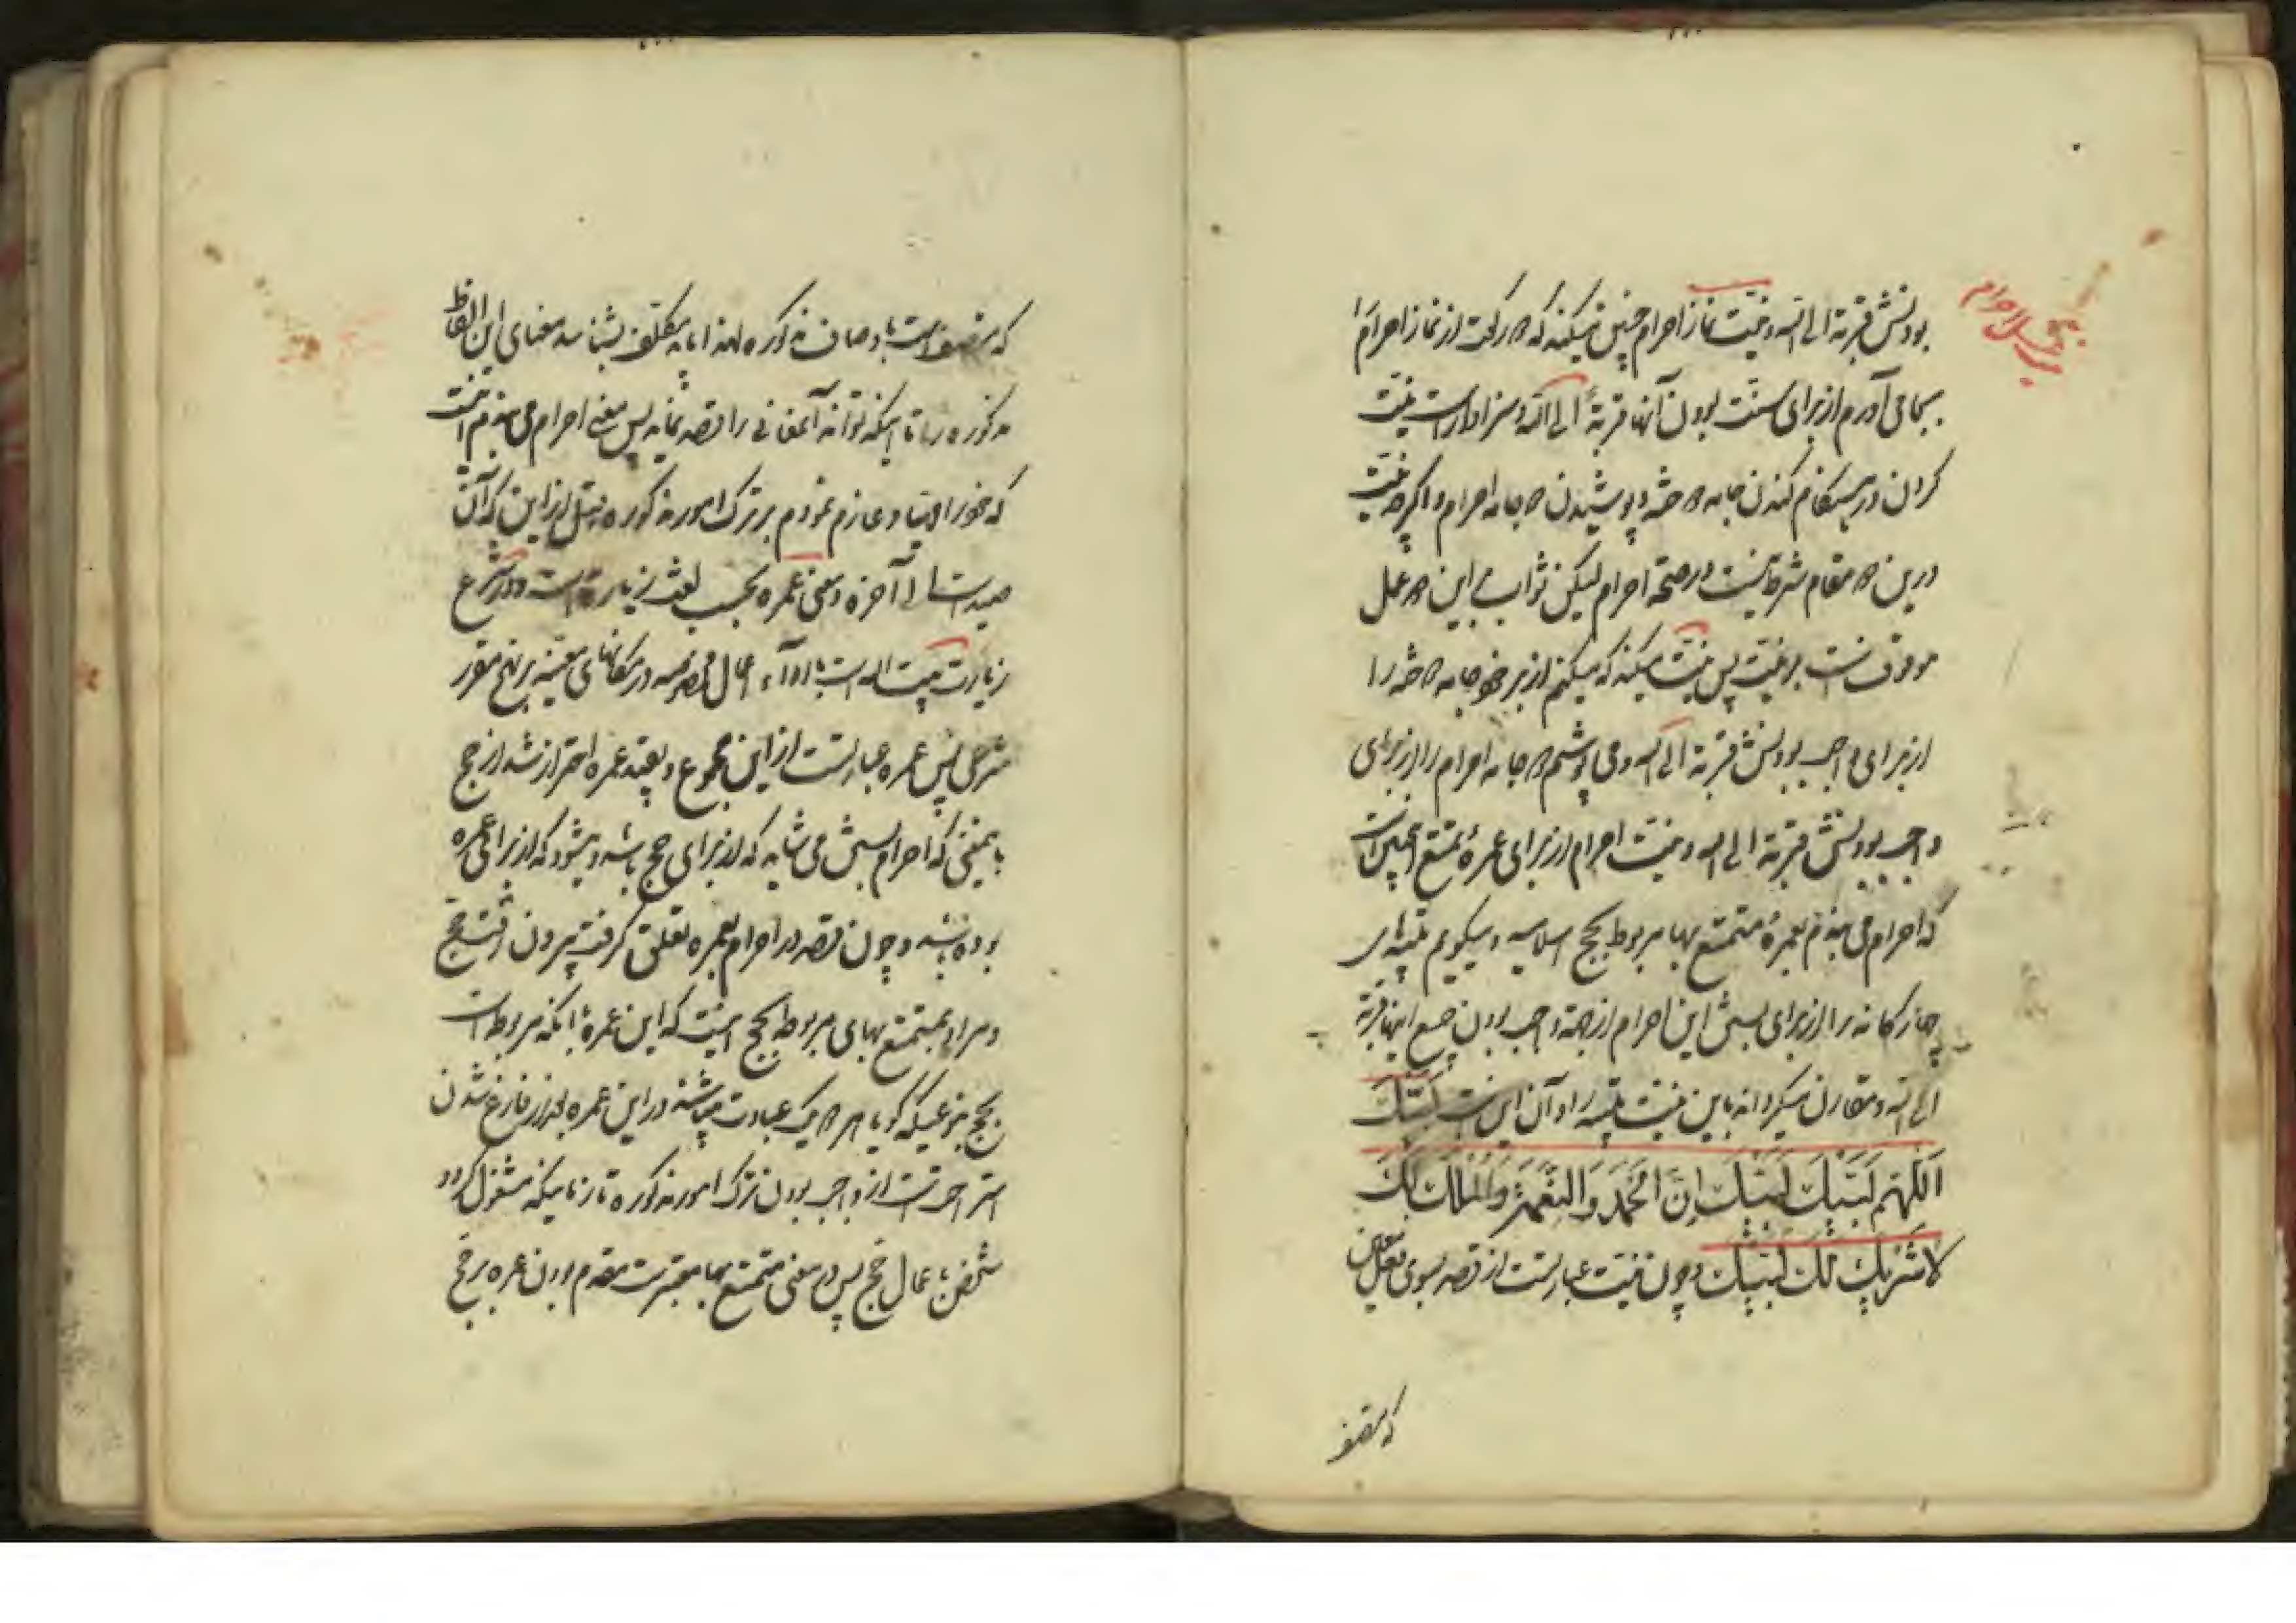 بودنش قربة الی الله و نیت نماز احرام چنین میکند که دو رکعت از نماز احرام را
بجا می آورم از برای سنت بودن آنها قربة الی الله و سزاوار است نیت
کردن در هنگام کندن جامه دوخته و پوشیدن دو جامه احرام و اگرچه نیت
درین دو مقام شرط نیست در صحة احرام لیکن ثواب این دو عمل
موقوفست بر نیت پس نیت میکند که میکنم از بر خود جامه دوخته را
از برای واجب بودنش قربة الی الله و می پوشم دو جامه احرام را از برای
واجب بودنش قربة الی الله و نیت احرام از برای عمرهٔ تمتع اینچنین است
که احرام می بندم بعمرهٔ متمتع بها مربوط بحج اسلامیه و میگویم تلبیه‌های
چهارگانه را از برای بستن این احرام از جهة واجب بودن جمیع اینها قربة
الی الله و مقارن میگرداند باین نیت تلبیه را و آن این است لَبَّیْکَ
اَللّهُمَّ لَبَّیْکَ لَبَّیْکَ اِنَّ الْحَمْدَ وَالنِّعْمَةَ وَالْمُلْکَ لَکَ
لا شَرِیکَ لَکَ لَبَّیْکَ و چون نیت عبارتست از قصد بسوی فعلی
که متصف
که متصف است باوصاف مذکوره لهذا باید مکلف بشناسد معنای این الفاظ
مذکوره را تا اینکه تواند آنمعانی را قصد نماید پس معنی احرام می بندم اینست
که خود را و عازم نمودم بر ترک امور مذکوره قبل از این که آن
صید است الی آخره و معنی عمره بحسب لغت زیارت است و در شرع
زیارت بیت الله است با ادآء اعمال مخصوصه در مکانهای معینه بر نهج مقرر
شرعی پس عمره عبارتست از این مجموع و بقید عمره احتراز شد از حج
باینمعنی که احرام بستن می شاید که از برای حج باشد و میشود که از برای عمره
بوده باشد و چون قصد در احرام بعمره تعلق گرفت بیرون رفت حج
و مراد بمتمتع بهای مربوط بحج اینست که این عمره با آنکه مربوط است
بحج بنوعیکه گویا هر دو یک عبادت میباشند در این عمره بعد از فارغ شدن
استراحت است از واجب بودن ترک امور مذکوره تا زمانیکه مشغول گردد
شخص باعمال حج پس در معنی متمتع بها معتبر است مقدم بودن عمره بر حج